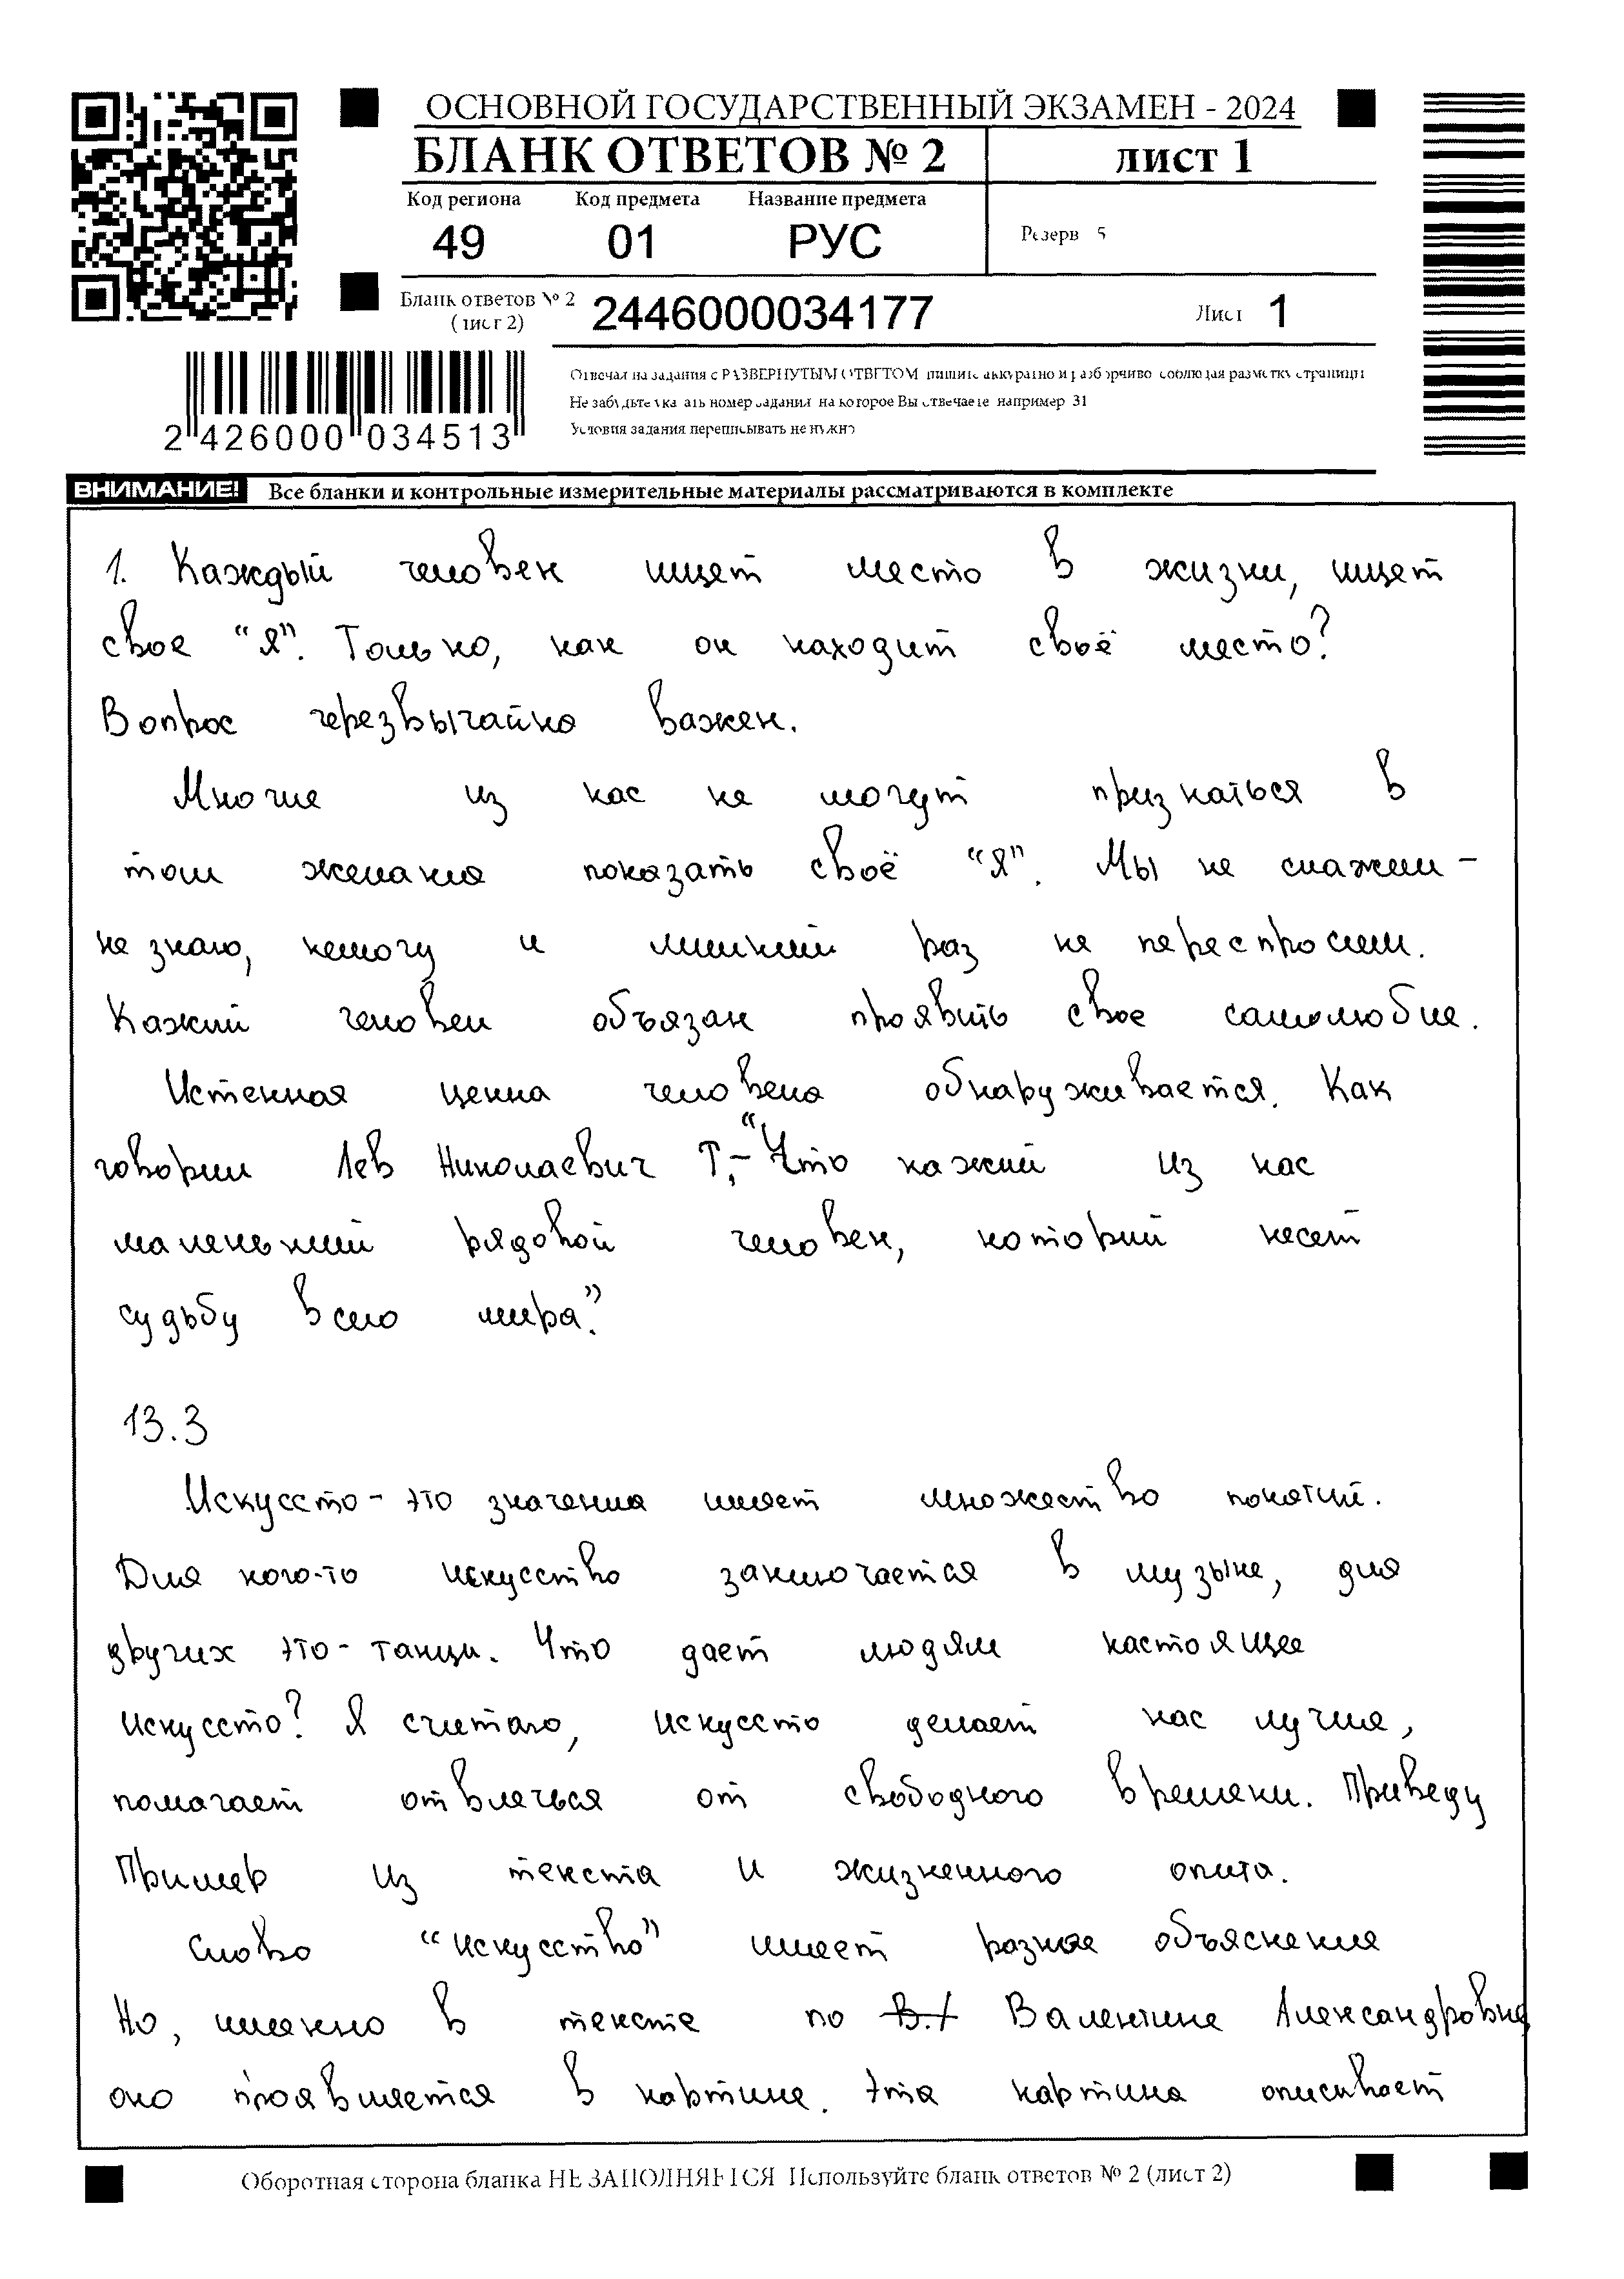 ОСНОВНОЙ ГОСУДАРСТВЕННЫЙ ЭКЗАМЕН - 2024
БЛАНК ОТВЕТОВ № 2
лист 1
Код региона Код предмета Название предмета
49 01 РУС
Резерв 5
Бланк ответов № 2
(лист 2)
2446000034177
Лист 1
2 426000 034513
Отвечая на задания с РАЗВЕРНУТЫМ ОТВЕТОМ пишите аккуратно и разборчиво соблюдая разметку страницы
Не забудьте указать номер задания на которое Вы отвечаете например 31
Условия задания переписывать не нужно
ВНИМАНИЕ! Все бланки и контрольные измерительные материалы рассматриваются в комплекте
1. Каждый человек ищет место в жизни, ищет
свое “Я”. Только, как он находит своё место?
Вопрос черезвычайно важен.
Многие из нас не могут признаться в
том желание показать своё “Я”. Мы не скажем -
не знаю, немогу и лишний раз не переспросим.
Кажий человек объязан проявить свое самолюбие.
Истенная ценна человека обнаруживается. Как
говорил Лев Николаевич Т,- “Что кажий из нас
маленький рядовой человек, который несет
судьбу всего мира”.
13.3
Искуссто - это значения имеет множество понятий.
Для кого-то искусство заключается в музыке, для
других это - танцы. Что дает людям настоящее
искуссто? Я считаю, искуссто делает нас лучше,
помагает отвлечься от свободного времени. Приведу
Пример из текста и жизненного опыта.
Слово “искусство” имеет разное объяснение
Но, именно в тексте по В.А Валентине Александровне
оно проявляется в картине. Эта картина описывает
Оборотная сторона бланка НЕ ЗАПОЛНЯЕТСЯ Используйте бланк ответов № 2 (лист 2)